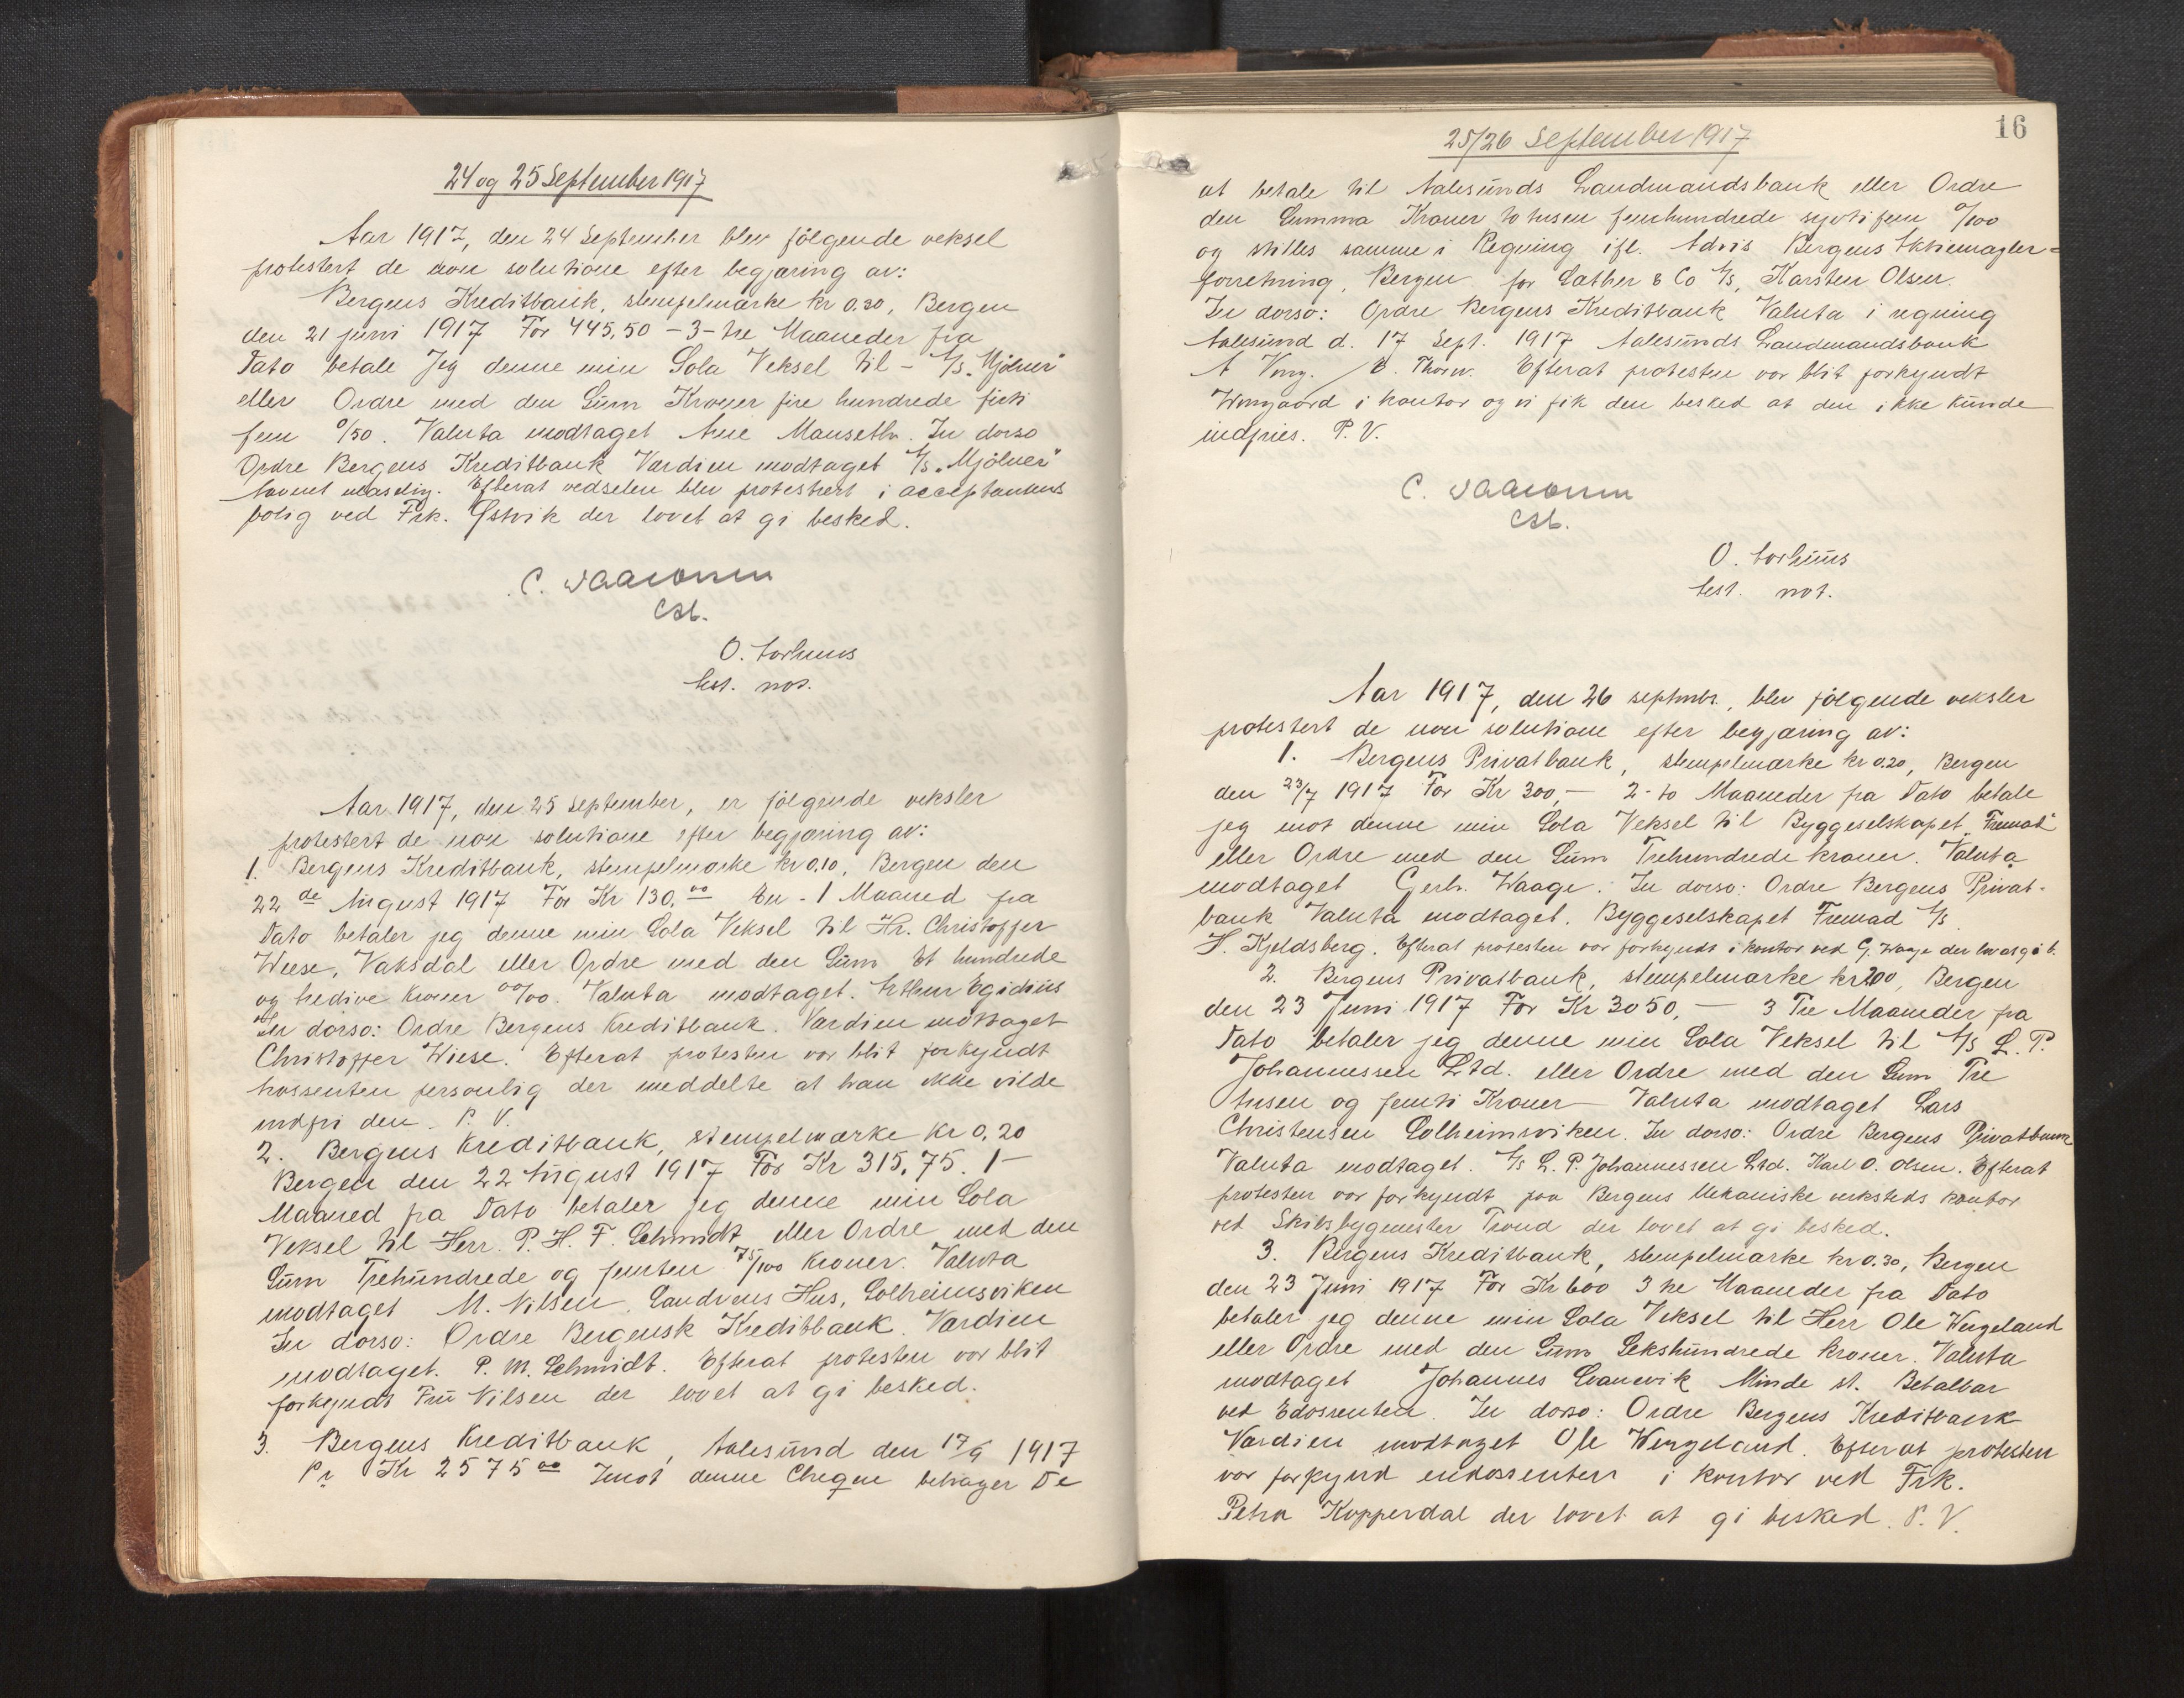 24 og 25 September 1917
Aar 1917, den 24 September blev følgende veksel
protestert de non solutione efter begjæring av:
Bergens Kreditbank, stempelmærke kr 0.30, Bergen
den 21 juni 1917 For 445,50 – 3 – tre Maaneder fra
Dato betale Jeg denne min Sola Veksel til – A/S „Mjölner"
eller Ordre med den Sum Kroner fire hundrede firti
fem 0/50. Valuta modtaget Arne Manseth. In dorso
Ordre Bergens Kreditbank Værdien modtaget A/S „Mjölner"
Efterat vedselen blev protestert i acceptantens
bolig ved Frk. Østvik der lovet at gi besked.
C.
Cst.
O. Aarhuus
best. not.
Aar 1917, den 25 September, er følgende veksler
protestert de non solutione efter begjæring av:
1. Bergens Kreditbank, stempelmærke kr 0.10, Bergen den
22 de August 1917 For Kr 130.00 En - 1 Maaned fra
Dato betaler jeg denne min Sola Veksel til Hr. Christoffer
Wiese, Vaksdal eller Ordre med den Sum Et hundrede
og tredive Kroner 00/00. Valuta modtaget. Arthur Egidius
In dorso: Ordre Bergens Kreditbank. Værdien modtaget
Christoffer Wiese. Efterat protesten var blit forkyndt
trossenten personlig der meddelte at han ikke vilde
indfri den. P. V.
2. Bergens Kreditbank, stempelmærke Kr 0,20
Bergen den 22 August 1917 For Kr 315,75. 1 –
Maaned fra Dato betaler jeg denne min Sola
Veksel til Herr. P. H. F. Schmidt eller Ordre med den
Sum Trehundrede og femten 75/100 Kroner. Valuta
modtaget M. Nilsen, Sandvens Hus, Solheimsviken
In dorso: Ordre Bergensk Kreditbank. Værdien
modtaget. P. M. Schmidt. Efterat protesten var blit
forkyndt Fru Nilsen der lovet at gi besked.
3. Bergens Kreditbank, Aalesund den 17/9 1917
Pr Kr 2575 00 Imot denne Cheque behager De
16
25/26 September 1917
at betale til Aalesunds Landmandsbank eller Ordre
den Summa Kroner to tusen femhundrede sytti fem 0/100
og stilles samme i Regning ifl. Advis Bergens Aktiemægler=
forretning, Bergen for Sather & Co A/S, Karsten Olsen.
In dorso: Ordre Bergens Kreditbank Valuta i regning
Aalesund d. 17 Sept. 1917 Aalesunds Landmandsbank
A Efterat protesten var blit forkyndt
i kontor og vi fik den besked at den ikke kunde
indfries. P. V.
C.
Cst.
O. Aarhuus
best. not.
Aar 1917, den 26 septmbr., blev følgende veksler
protestert de non solutione efter begjæring av:
1. Bergens Privatbank, stempelmærke kr 0.20, Bergen
den 23/7 1917 For Kr 300,– 2 - to Maaneder fra Dato betale
jeg mot denne min Sola Veksel til Byggeselskapet „Fremad"
eller Ordre med den Sum Trehundrede kroner. Valuta
modtaget Gerh. Waage. In dorso: Ordre Bergens Privat-
bank Valuta modtaget. Byggeselskapet Fremad A/S
H. Kjeldsberg. Efterat protesten var forkyndt i kontor ved G. Waage der lovet gi b.
2. Bergens Privatbank, stempelmærke kr 2.00, Bergen
den 23 Juni 1917 For Kr 3050,– 3 Tre Maaneder fra
Dato betaler jeg denne min Sola Veksel til A/S L. P.
Johannessen Ltd. eller Ordre med den Sum Tre
tusen og femti Kroner – Valuta modtaget Lars
Christensen Solheimsviken. In dorso: Ordre Bergens Privatbank
Valuta modtaget. A/S L. P. Johannessen Ltd. Karl O. Olsen. Efterat
protesten var forkyndt paa Bergens Mekaniske verksteds kontor
ved Skibsbygmester Trond der lovet at gi besked.
3. Bergens Kreditbank, stempelmærke kr 0.30, Bergen
den 23 Juni 1917 For Kr 600 3 tre Maaneder fra Dato
betaler jeg denne min Sola Veksel til Herr Ole Wergeland
eller Ordre med den Sum Sekshundrede Kroner. Valuta
modtaget Johannes Svanevik Minde st. Betalbar
ved Edossenten. In dorso: Ordre Bergens Kreditbank
Værdien modtaget Ole Wergeland. Efterat protesten
var forkynd endossenten i kontor ved Frk.
Petra Kopperdal der lovet at gi besked. P. V.